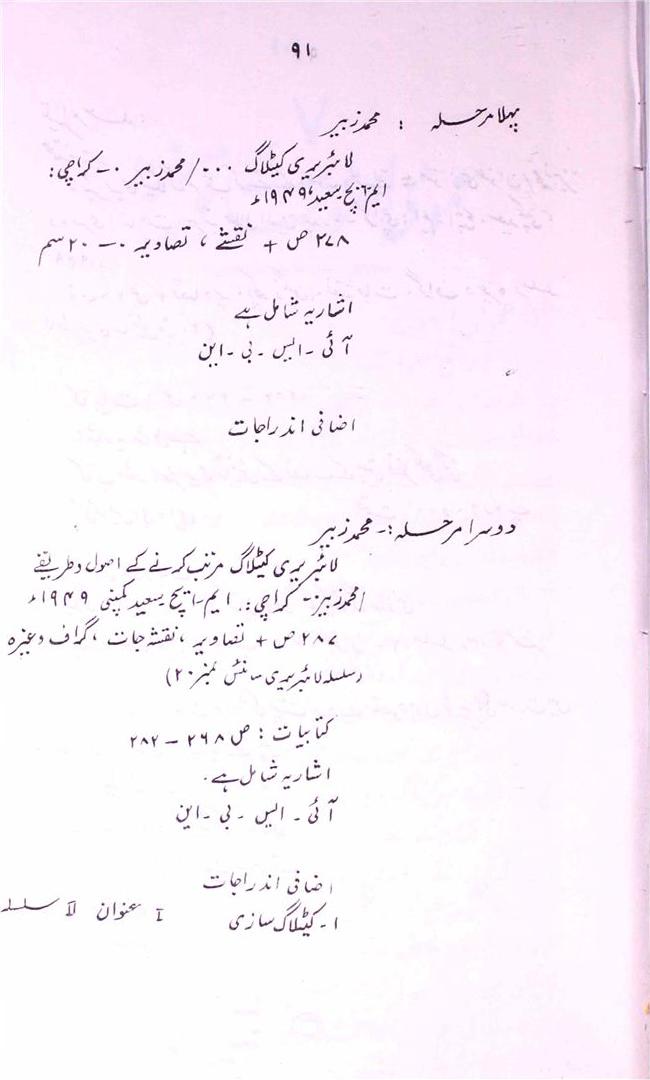 ۹۱
پہلا مرحلہ : محمد زبیر
لائبریری کیٹلاگ ۰۰۰ / محمد زبیر ۔۔ کراچی :
ایم ایچ سعید، ۱۹۴۹ء
۲۷۸ ص + نقشے ، تصاویر ۔۔ ۲۰ سم
اشاریہ شامل ہے
آئی ۔ ایس ۔ بی ۔ این
اضافی اندراجات
دوسرا مرحلہ :۔ محمد زبیر
لائبریری کیٹلاگ مرتب کرنے کے اصول و طریقے
/ محمد زبیر ۔ کراچی : ایم ۔ ایچ سعید کمپنی ۱۹۴۹ء
۲۸۷ ص + تصاویر ، نقشہ جات ، گراف وغیرہ
(سلسلہ لائبریری سائنس نمبر ۲۰)
کتابیات : ص ۲۶۸ – ۲۸۲
اشاریہ شامل ہے ۔
آئی ۔ ایس ۔ بی ۔ این
اضافی اندراجات
۱ ۔ کیٹلاگ سازی I عنوان II سلسلہ